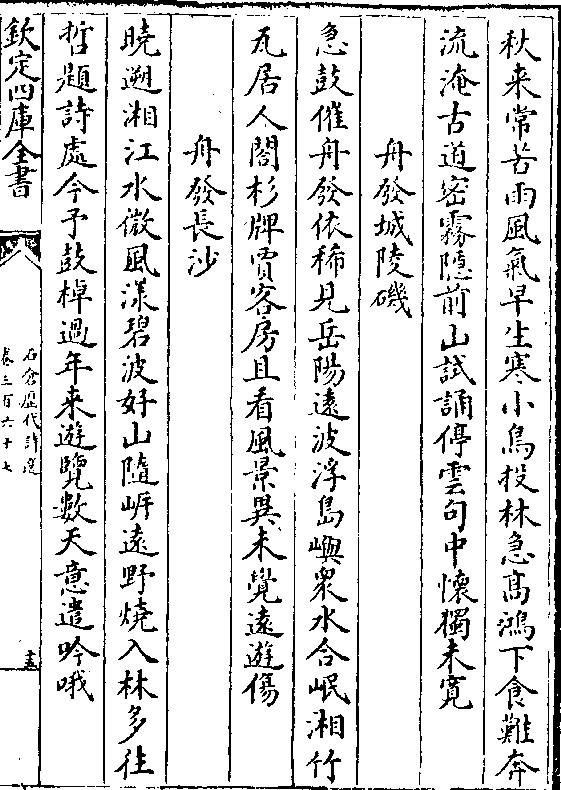 秋来常苦雨風氣早生寒小鳥投林急髙鴻下食難奔
流淹古道密霧隠前山試誦停雲句中懷獨未寛
舟發城陵磯
急鼓催舟發依稀見岳陽遠波浮島嶼衆水合岷湘竹
瓦居人閣杉牌賈客房且看風景異未覺遠遊傷
舟發長沙
曉遡湘江水微風漾碧波好山隨㟁遠野燒入林多往
哲題詩處今予鼓棹過年来遊覽數天意遣吟哦
欽定四庫全書
石倉歴代詩選
卷三百六十七
十五